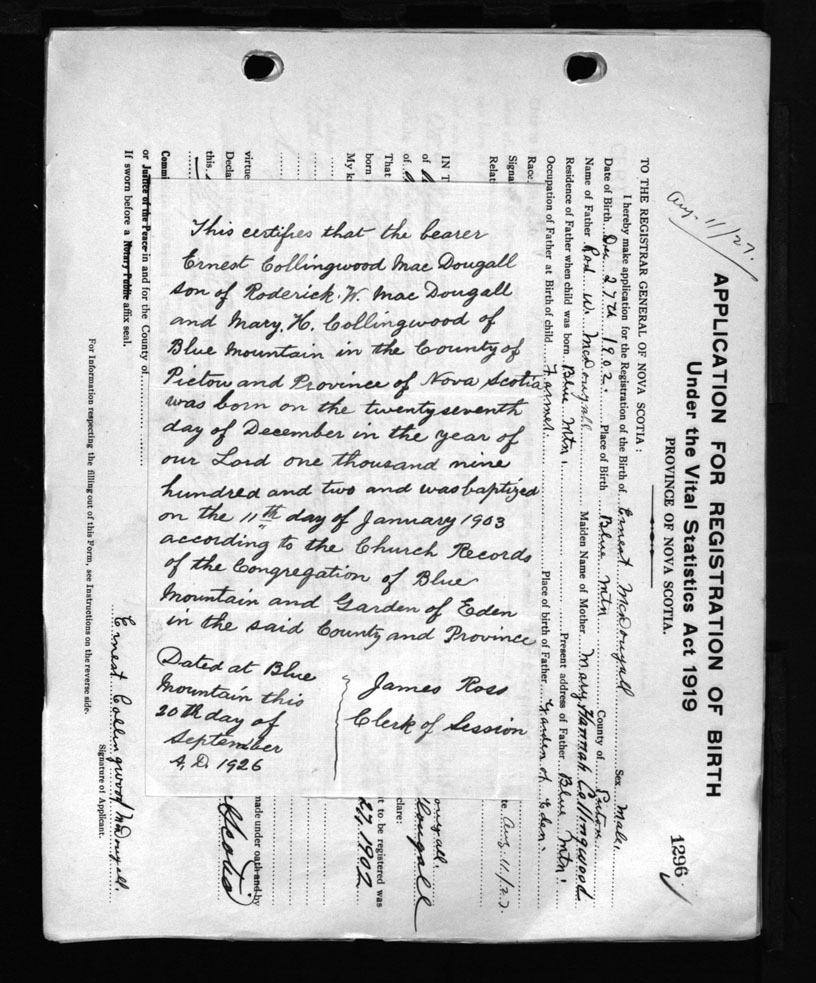 Aug. 11/27.
APPLICATION FOR REGISTRATION OF BIRTH
Under the Vital Statistics Act 1919
PROVINCE OF NOVA SCOTIA.
1296
TO THE REGISTRAR GENERAL OF NOVA SCOTIA:
I hereby make application for the Registration of the Birth of Ernest McDougall Sex Male.
Date of Birth Dec 27th 1902. Place of Birth Blue Mtn County of Pictou
Name of Father Rod W. McDougall Maiden Name of Mother Mary Hannah Collingwood
Residence of Father when child was born Blue Mtn. Present address of Father Blue Mtn.
Occupation of Father at Birth of child Farmer. Place of birth of Father Garden of Eden.
Race
Signa
Relat
te Aug. 11/27.
IN T
of
ougall.
clare:
of
Dougall
That
t to be registered was
born
27, 1902
My k
virtue
made under oath and by
Decla
this
Scotia
Commi
or Justice of the Peace in and for the County of
If sworn before a Notary Public affix seal.
Ernest Collingwood McDougall.
Signature of Applicant.
For Information respecting the filling out of this Form, see Instructions on the reverse side.
This certifies that the bearer
Ernest Collingwood Mac Dougall
son of Roderick. W. Mac Dougall
and Mary. H. Collingwood of
Blue Mountain in the County of
Pictou and Province of Nova Scotia
was born on the twenty seventh
day of December in the year of
our Lord one thousand nine
hundred and two and was baptized
on the 11th day of January 1903
according to the Church Records
of the Congregation of Blue
Mountain and Garden of Eden
in the said County and Province
Dated at Blue
Mountain this
20th day of
September
A. D. 1926
James Ross
Clerk of Session